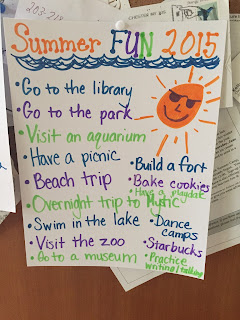 203-218
CHESTER NY 105
Summer FUN 2015
• Go to the library
• Go to the park
• Visit an aquarium
• Have a picnic
• Beach trip
• Overnight trip to Mystic
• Swim in the lake
• Visit the zoo
• Go to a museum
• Build a fort
• Bake cookies
• Have a playdate
• Dance
camps
• Starbucks
• Practice
writing/talking